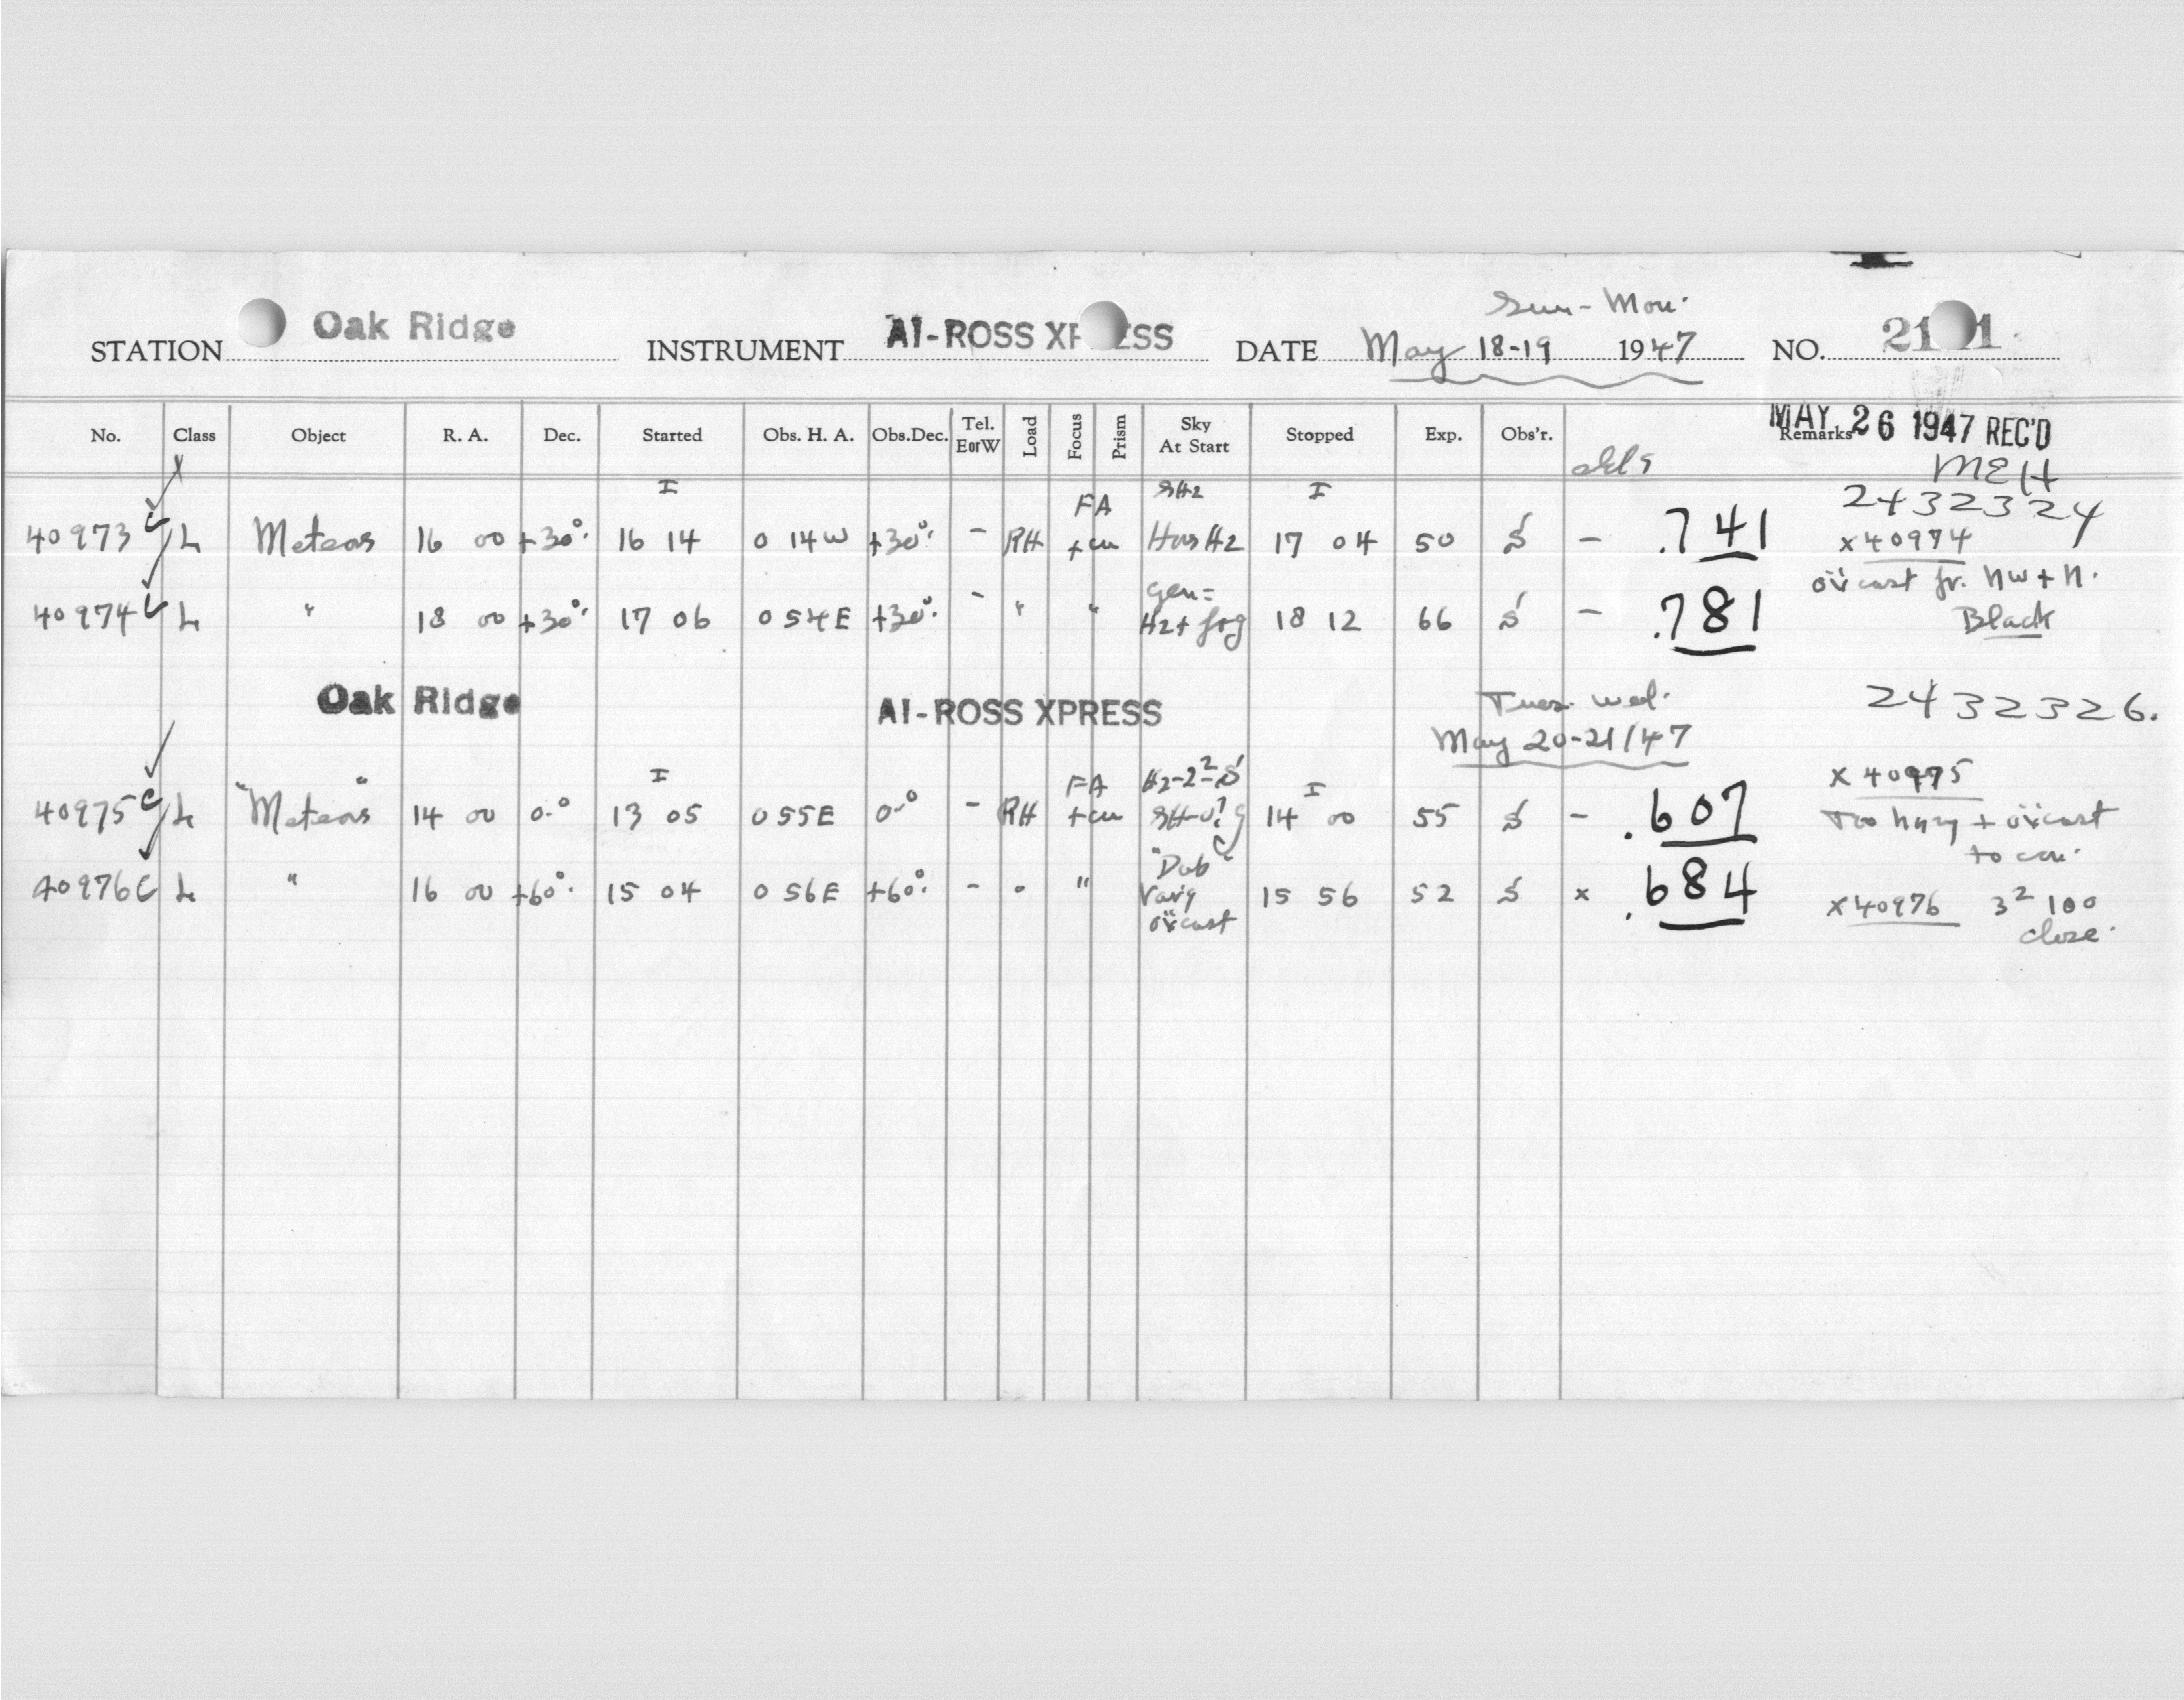 Sun-Mon.
STATION Oak Ridge INSTRUMENT AI-ROSS XP ESS DATE May 18-19 1947 NO. 21 1
MAY 26 1947 REC'D
No. Class Object R. A. Dec. Started Obs. H. A. Obs.Dec. Tel. EorW Load Focus Prism Sky At Start Stopped Exp. Obs'r. Remarks
MEH
I FA SHz I 2432324
40973 C L Meteors 16 00 +30°. 16 14 0 14W +30°. - RH +cu Hz 17 04 50 S - .741 x40974
40974 C L " 18 00 +30°. 17 06 0 54E +30°. - " " gen= Hz+fog 18 12 66 S - .781 ov'cast fr. NW + N.
Black
Oak Ridge AI-ROSS XPRESS Tues. Wed. 2432326.
May 20-21/47
I FA Hz-2²-S I x 40975
40975 C L "Meteors" 14 00 0.° 13 05 0 55E 0.° - RH +cu 14 00 55 S - .607 Too hazy + ov'cast
to con.
40976 C L " 16 00 +60°. 15 04 0 56E +60°. - " " "Dub" Var'g ov'cast 15 56 52 S x .684 x40976 3² 100
close.